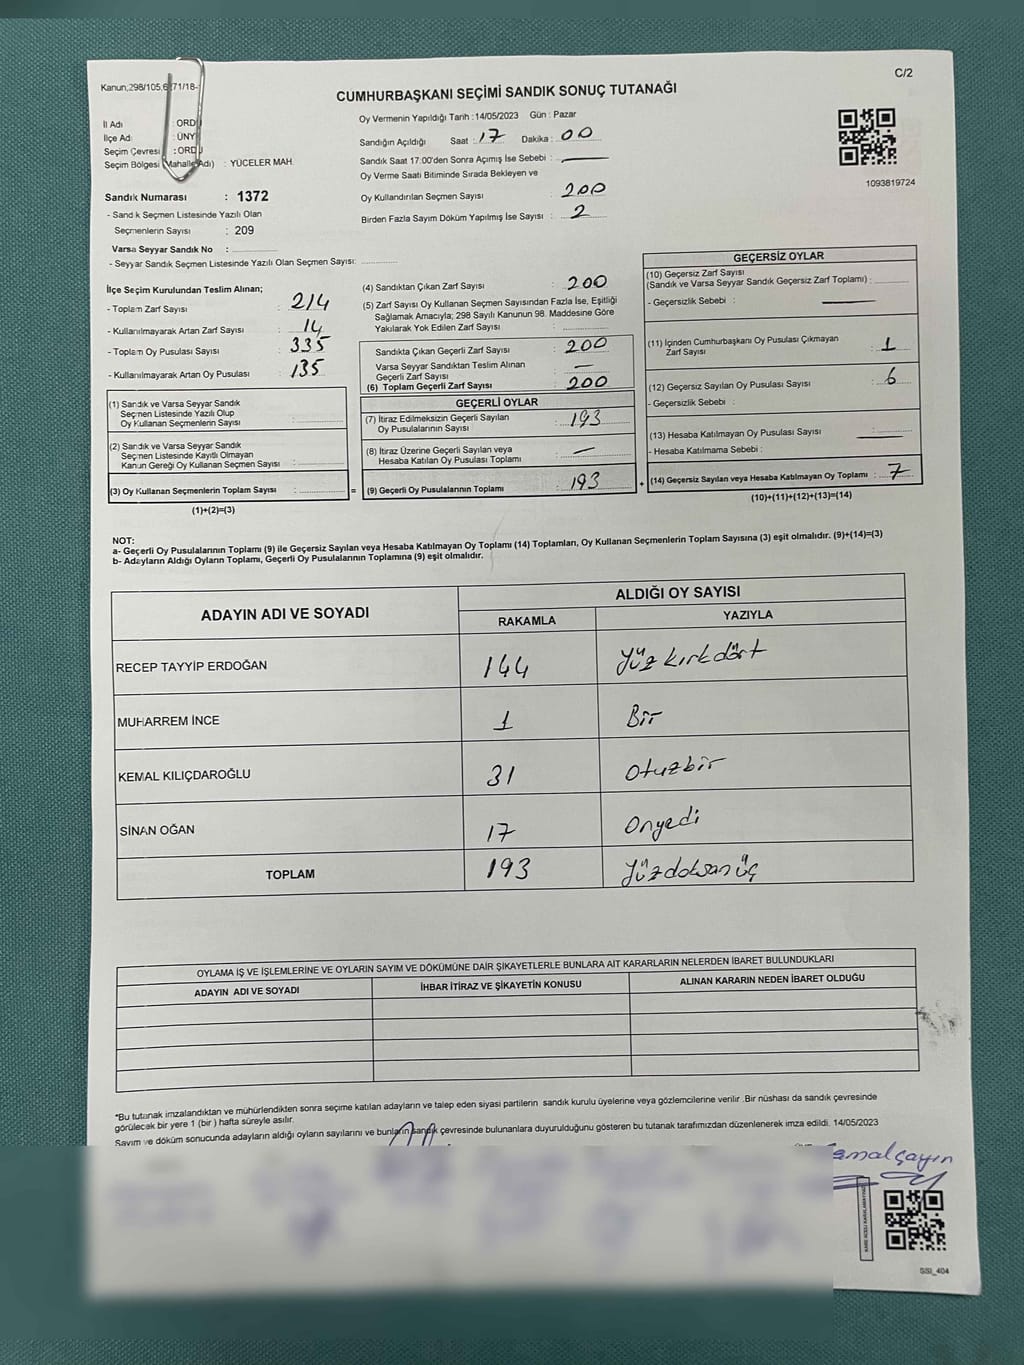 C/2
Kanun;298/105,6 71/18-
CUMHURBAŞKANI SEÇİMİ SANDIK SONUÇ TUTANAĞI
İl Adı : ORD
İlçe Adı : ÜNY
Seçim Çevresi : ORD
Seçim Bölgesi (Mahalle Adı) : YÜCELER MAH.
Sandık Numarası : 1372
- Sandık Seçmen Listesinde Yazılı Olan
Seçmenlerin Sayısı : 209
Varsa Seyyar Sandık No :
- Seyyar Sandık Seçmen Listesinde Yazılı Olan Seçmen Sayısı:
Oy Vermenin Yapıldığı Tarih : 14/05/2023 Gün : Pazar
Sandığın Açıldığı Saat : 17 Dakika : 00
Sandık Saat 17:00'den Sonra Açımış İse Sebebi :
Oy Verme Saati Bitiminde Sırada Bekleyen ve
Oy Kullandırılan Seçmen Sayısı : 200
Birden Fazla Sayım Döküm Yapılmış İse Sayısı : 2
1093819724
İlçe Seçim Kurulundan Teslim Alınan;
- Toplam Zarf Sayısı : 214
- Kullanılmayarak Artan Zarf Sayısı : 14
- Toplam Oy Pusulası Sayısı : 335
- Kullanılmayarak Artan Oy Pusulası : 135
(1) Sandık ve Varsa Seyyar Sandık
Seçmen Listesinde Yazılı Olup
Oy Kullanan Seçmenlerin Sayısı :
(2) Sandık ve Varsa Seyyar Sandık
Seçmen Listesinde Kayıtlı Olmayan
Kanun Gereği Oy Kullanan Seçmen Sayısı :
(3) Oy Kullanan Seçmenlerin Toplam Sayısı : =
(1)+(2)=(3)
(4) Sandıktan Çıkan Zarf Sayısı : 200
(5) Zarf Sayısı Oy Kullanan Seçmen Sayısından Fazla İse, Eşitliği
Sağlamak Amacıyla; 298 Sayılı Kanunun 98. Maddesine Göre
Yakılarak Yok Edilen Zarf Sayısı :
Sandıkta Çıkan Geçerli Zarf Sayısı : 200
Varsa Seyyar Sandıktan Teslim Alınan
Geçerli Zarf Sayısı :
(6) Toplam Geçerli Zarf Sayısı : 200
GEÇERLİ OYLAR
(7) İtiraz Edilmeksizin Geçerli Sayılan
Oy Pusulalarının Sayısı : 193
(8) İtiraz Üzerine Geçerli Sayılan veya
Hesaba Katılan Oy Pusulası Toplamı :
(9) Geçerli Oy Pusulalarının Toplamı : 193 +
GEÇERSİZ OYLAR
(10) Geçersiz Zarf Sayısı
(Sandık ve Varsa Seyyar Sandık Geçersiz Zarf Toplamı) :
- Geçersizlik Sebebi :
(11) İçinden Cumhurbaşkanı Oy Pusulası Çıkmayan
Zarf Sayısı : 1
(12) Geçersiz Sayılan Oy Pusulası Sayısı : 6
- Geçersizlik Sebebi :
(13) Hesaba Katılmayan Oy Pusulası Sayısı :
- Hesaba Katılmama Sebebi :
(14) Geçersiz Sayılan veya Hesaba Katılmayan Oy Toplamı : 7
(10)+(11)+(12)+(13)=(14)
NOT:
a- Geçerli Oy Pusulalarının Toplamı (9) ile Geçersiz Sayılan veya Hesaba Katılmayan Oy Toplamı (14) Toplamları, Oy Kullanan Seçmenlerin Toplam Sayısına (3) eşit olmalıdır. (9)+(14)=(3)
b- Adayların Aldığı Oyların Toplamı, Geçerli Oy Pusulalarının Toplamına (9) eşit olmalıdır.
ADAYIN ADI VE SOYADI
ALDIĞI OY SAYISI
RAKAMLA YAZIYLA
RECEP TAYYİP ERDOĞAN 144 Yüz kırkdört
MUHARREM İNCE 1 Bir
KEMAL KILIÇDAROĞLU 31 Otuzbir
SİNAN OĞAN 17 Onyedi
TOPLAM 193 Yüzdoksanüç
OYLAMA İŞ VE İŞLEMLERİNE VE OYLARIN SAYIM VE DÖKÜMÜNE DAİR ŞİKAYETLERLE BUNLARA AİT KARARLARIN NELERDEN İBARET BULUNDUKLARI
ADAYIN ADI VE SOYADI İHBAR İTİRAZ VE ŞİKAYETİN KONUSU ALINAN KARARIN NEDEN İBARET OLDUĞU
*Bu tutanak imzalandıktan ve mühürlendikten sonra seçime katılan adayların ve talep eden siyasi partilerin sandık kurulu üyelerine veya gözlemcilerine verilir .Bir nüshası da sandık çevresinde
görülecek bir yere 1 (bir ) hafta süreyle asılır.
Sayım ve döküm sonucunda adayların aldığı oyların sayılarını ve bunların sandık çevresinde bulunanlara duyurulduğunu gösteren bu tutanak tarafımızdan düzenlenerek imza edildi. 14/05/2023
SSI_404